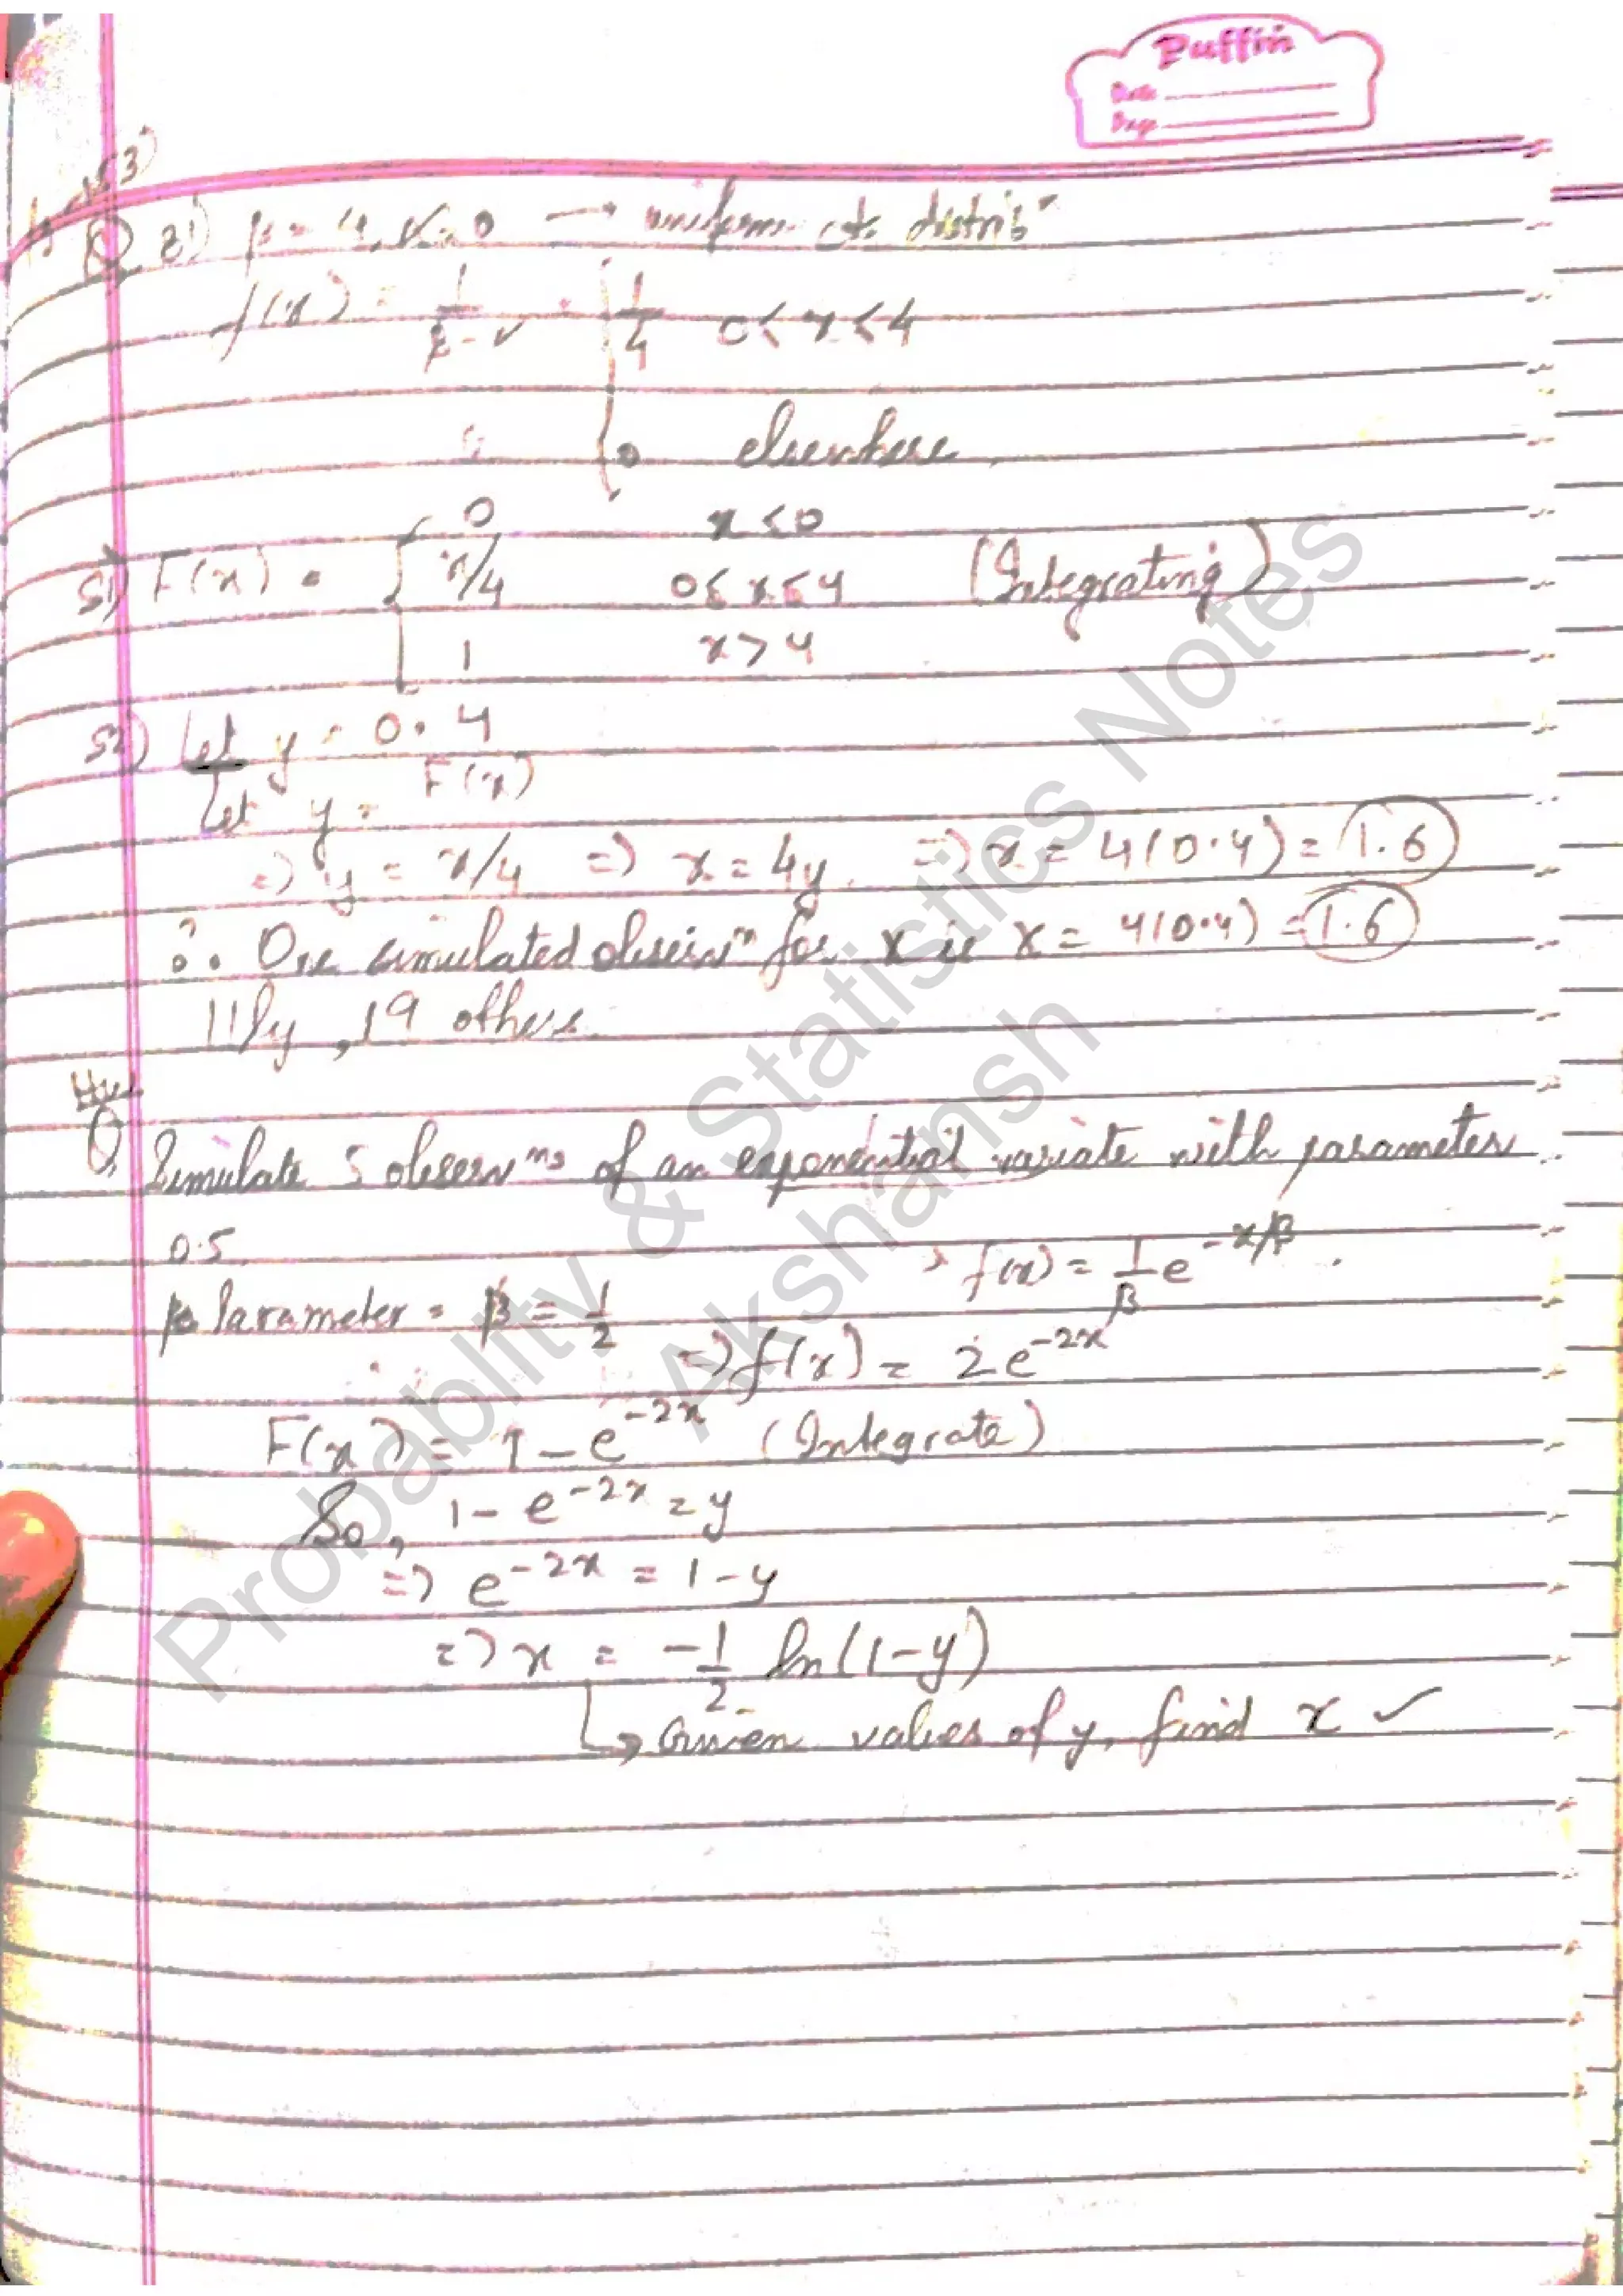 Puffin
Date
Page
Q 8) β = 4, α = 0 → uniform cts distribⁿ
f(x) = 1/(β-α) = { 1/4 0 < x < 4
0 elsewhere
S1) F(x) = { 0 x < 0
x/4 0 ≤ x ≤ 4 (Integrating)
1 x > 4
S2) Let y = 0.4
Let y = F(x)
=) y = x/4 =) x = 4y =) x = 4(0.4) = 1.6
∴ One simulated observⁿ for X is x = 4(0.4) = 1.6
111ly, 19 others
Hw
Q. Simulate 5 observⁿˢ of an exponential variate with parameter
0.5
Parameter = β = 1/2 → f(x) = 1/β e^(-x/β)
=) f(x) = 2e^(-2x)
F(x) = 1 - e^(-2x) (Integrate)
So, 1 - e^(-2x) = y
=) e^(-2x) = 1 - y
=) x = -1/2 ln(1-y)
↳ Given values of y, find x ✓
Probablity & Statistics Notes
Akshansh